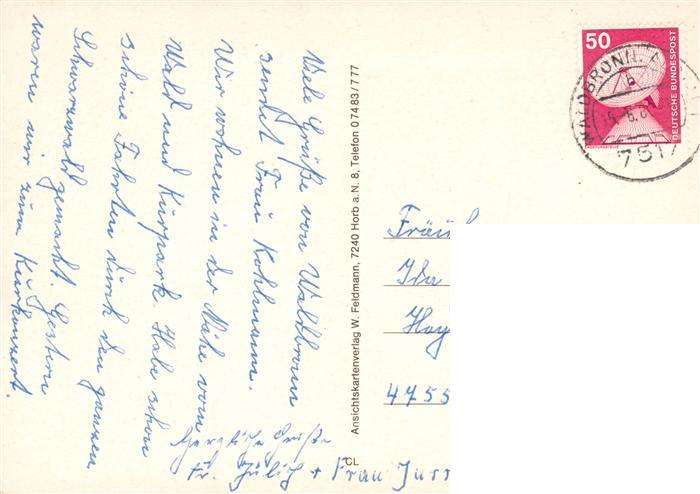 Viele Grüße von Waldbronn
sendet Frau Kohlmann.
Wir wohnen in der Nähe vom
Wald und Kurpark. Habe schon
schöne Fahrten durch den ganzen
Schwarzwald gemacht. Gestern
waren wir zum Kurkonzert.
Herzliche Grüße
Fr. Jülich + Frau
CL
Ansichtskartenverlag W. Feldmann, 7240 Horb a. N. 8, Telefon 07483/777
50
DEUTSCHE BUNDESPOST
WALDBRONN
7517
Ida
4455